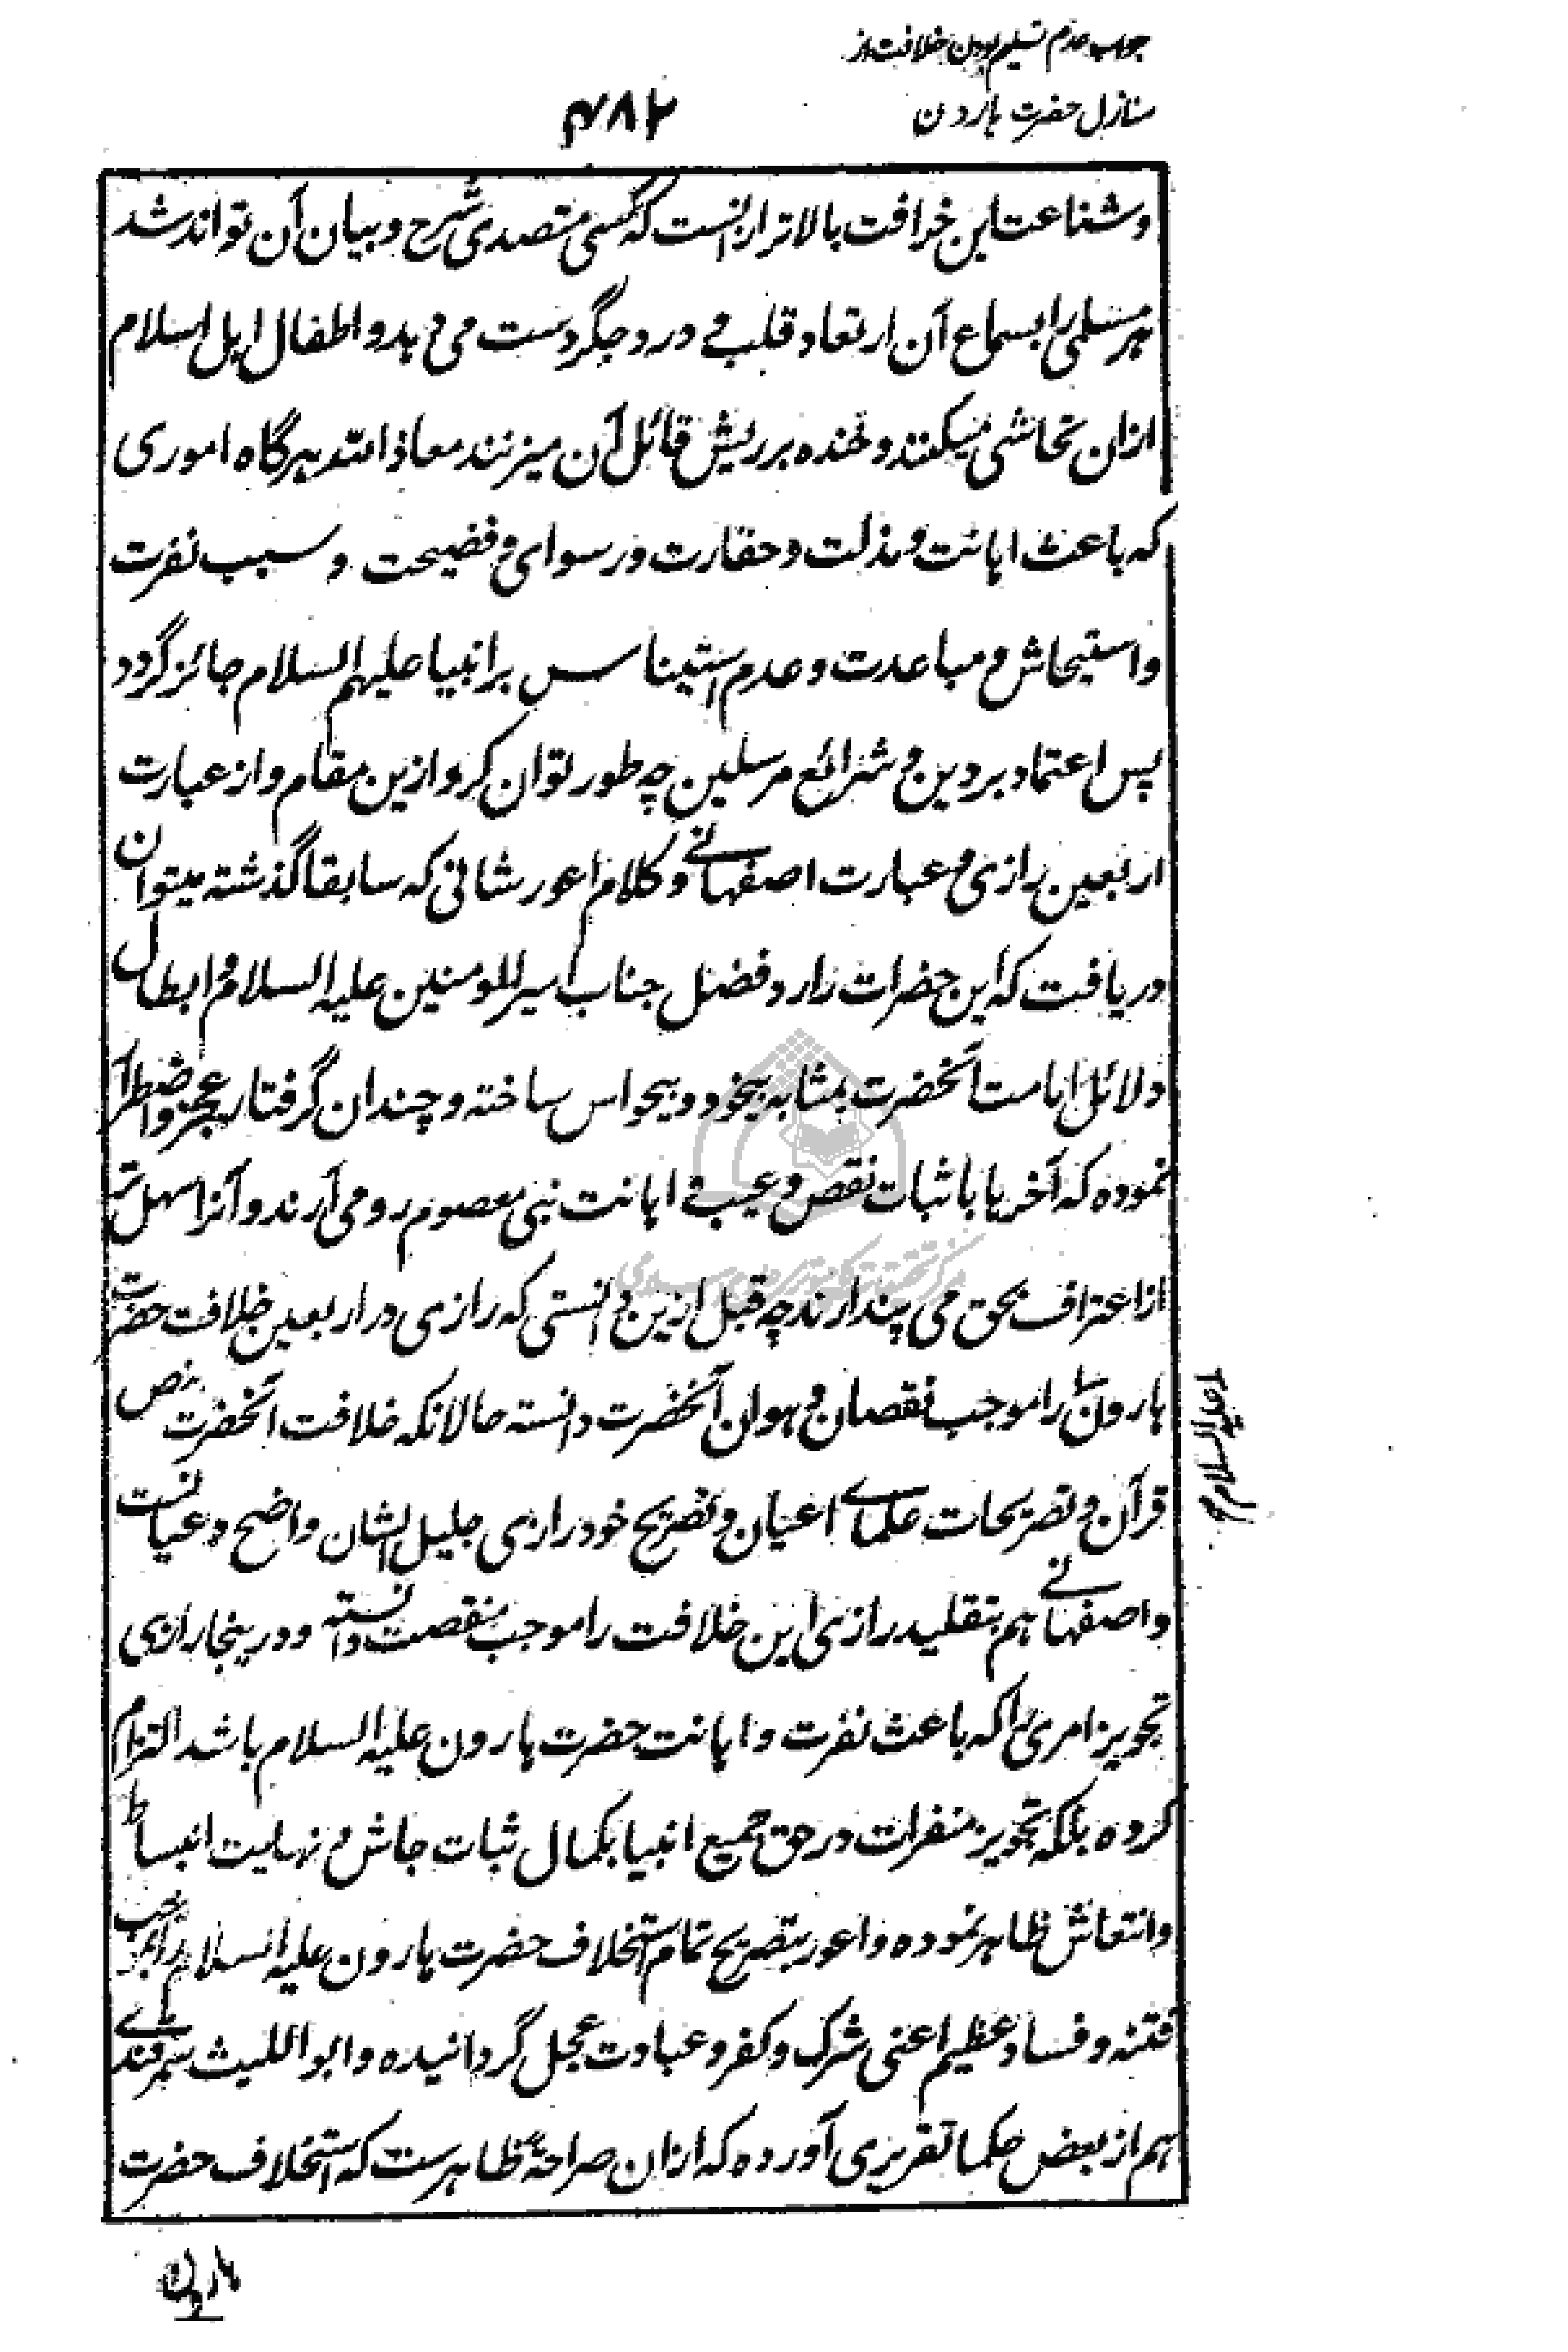 جواب عدم تسلیم بودن خلافت از
منازل حضرت هارون
۴۸۲
وشناعت این خرافت بالاتر ازانست که کسی متصدی شرح وبیان آن تواند شد
هر مسلمی را بسماع آن ارتعاد قلب و درد جگر دست می دهد و اطفال اهل اسلام
ازان تحاشی میکنند و خنده بر ریش قائل آن میزنند معاذ الله هرگاه اموری
که باعث اهانت و مذلت و حقارت و رسوای و فضیحت و سبب نفرت
و استیحاش و مباعدت و عدم استیناس بر انبیا علیهم السلام جائز گردد
پس اعتماد بر دین و شرائع مرسلین چه طور توان کرد و ازین مقام و از عبارت
اربعین رازی و عبارت اصفهانی و کلام اعور شانی که سابقا گذشته میتوان
دریافت که این حضرات را رد فضل جناب امیر المومنین علیه السلام و ابطال
دلائل امامت آنحضرت بمثابه بیخود و بیحواس ساخته و چندان گرفتار عجز و اضطرار
نموده که آخرها باثبات نقص و عیب و اهانت نبی معصوم رو می آرند و آنرا سهل تر
از اعتراف بحق می پندارند چه قبل ازین دانستی که رازی در اربعین خلافت حضرت
هارون را موجب نقصان و هوان آنحضرت دانسته حالانکه خلافت آنحضرت بنص
قرآن و تصریحات علمای اعیان و تصریح خود رازی جلیل الشان واضح و عیانست
و اصفهانی هم بتقلید رازی این خلافت را موجب منقصت دانسته و درینجا رازی
تجویز امری را که باعث نفرت و اهانت حضرت هارون علیه السلام باشد التزام
کرده بلکه تجویز منفرات در حق جمیع انبیا بکمال ثبات جاش و نهایت انبساط
و انتعاش ظاهر نموده و اعور بتصریح تمام استخلاف حضرت هارون علیه السلام را موجب
فتنه و فساد عظیم اعنی شرک و کفر و عبادت عجل گردانیده و ابو اللیث سمرقندی
هم از بعض حکما تقریری آورده که ازان صراحة ظاهرست که استخلاف حضرت
هارون